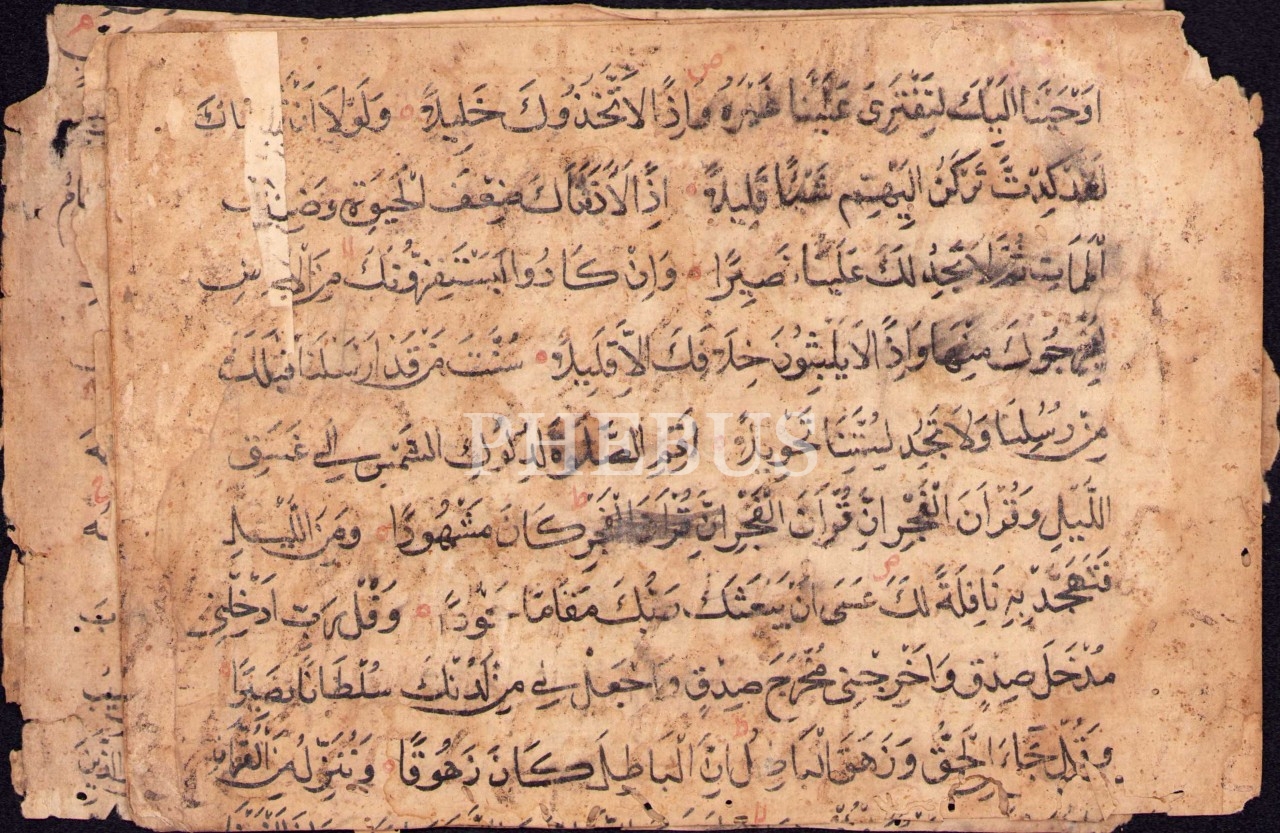 اوْحَيْنَا اِلَيْكَ لِتَفْتَرِىَ عَلَيْنَا غَيْرَهُ وَاِذًا لَاتَّخَذُوكَ خَلِيلًا وَلَوْلَا اَنْ
لَقَدْ كِدْتَّ تَرْكَنُ اِلَيْهِمْ شَيْئًا قَلِيلًا اِذًا لَاَذَقْنَاكَ ضِعْفَ الْحَيٰوةِ وَضِعْفَ
الْمَمَاتِ ثُمَّ لَا تَجِدُ لَكَ عَلَيْنَا نَصِيرًا وَاِنْ كَادُوا لَيَسْتَفِزُّونَكَ مِنَ الْاَرْضِ
لِيُخْرِجُوكَ مِنْهَا وَاِذًا لَا يَلْبَثُونَ خِلَافَكَ اِلَّا قَلِيلًا سُنَّتَ مَنْ قَدْ اَرْسَلْنَا قَبْلَكَ
مِنْ رُسُلِنَا وَلَا تَجِدُ لِسُنَّتِنَا تَحْوِيلًا اَقِمِ الصَّلٰوةَ لِدُلُوكِ الشَّمْسِ اِلٰى غَسَقِ
اللَّيْلِ وَقُرْاٰنَ الْفَجْرِ اِنَّ قُرْاٰنَ الْفَجْرِ اِنَّ قُرْاٰنَ الْفَجْرِ كَانَ مَشْهُودًا وَمِنَ اللَّيْلِ
فَتَهَجَّدْ بِهِ نَافِلَةً لَكَ عَسَى اَنْ يَبْعَثَكَ رَبُّكَ مَقَامًا وَقُلْ رَبِّ اَدْخِلْنِى
مُدْخَلَ صِدْقٍ وَاَخْرِجْنِى مُخْرَجَ صِدْقٍ وَاجْعَلْ لِى مِنْ لَدُنْكَ سُلْطَانًا نَصِيرًا
وَقُلْ جَاءَ الْحَقُّ وَزَهَقَ الْبَاطِلُ اِنَّ الْبَاطِلَ كَانَ زَهُوقًا وَنُنَزِّلُ مِنَ الْقُرْاٰنِ
PHEBUS